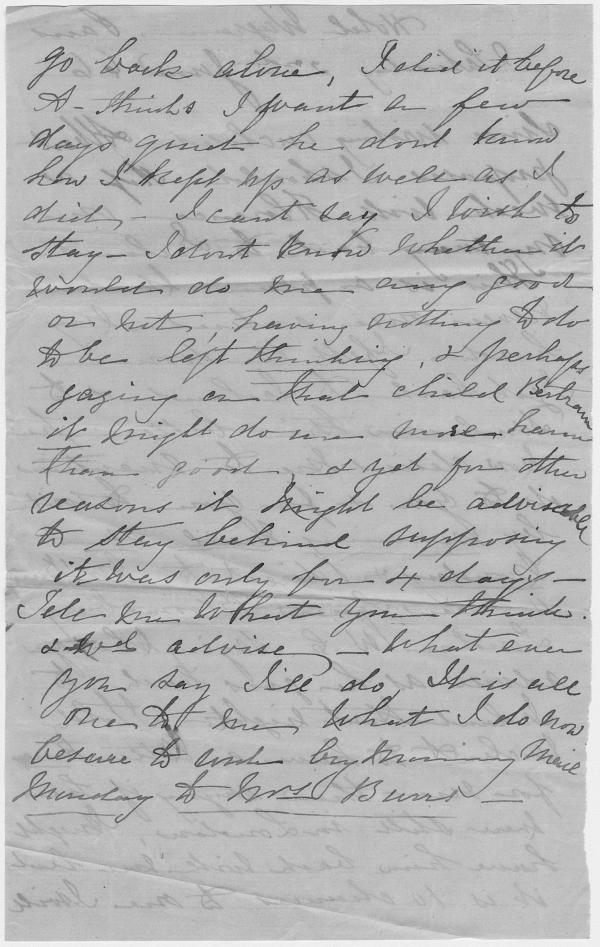 go back alone, I did it before
A- thinks I want a few
days quiet he dont know
how I kept up as well as I
did, - I cant say I wish to
stay - I dont know whether it
would do me any good
or not, having nothing to do
to be left thinking, & perhaps
gazing on that child Bertram
it might do me more harm
than good, & yet for other
reasons it might be advisable
to stay behind supposing
it was only for 4 days -
Tele me what you think.
& wd advise - What ever
you say I'll do, It is all
one to me what I do now
besure to write by morning Mail
Monday to Mrs Burrs -